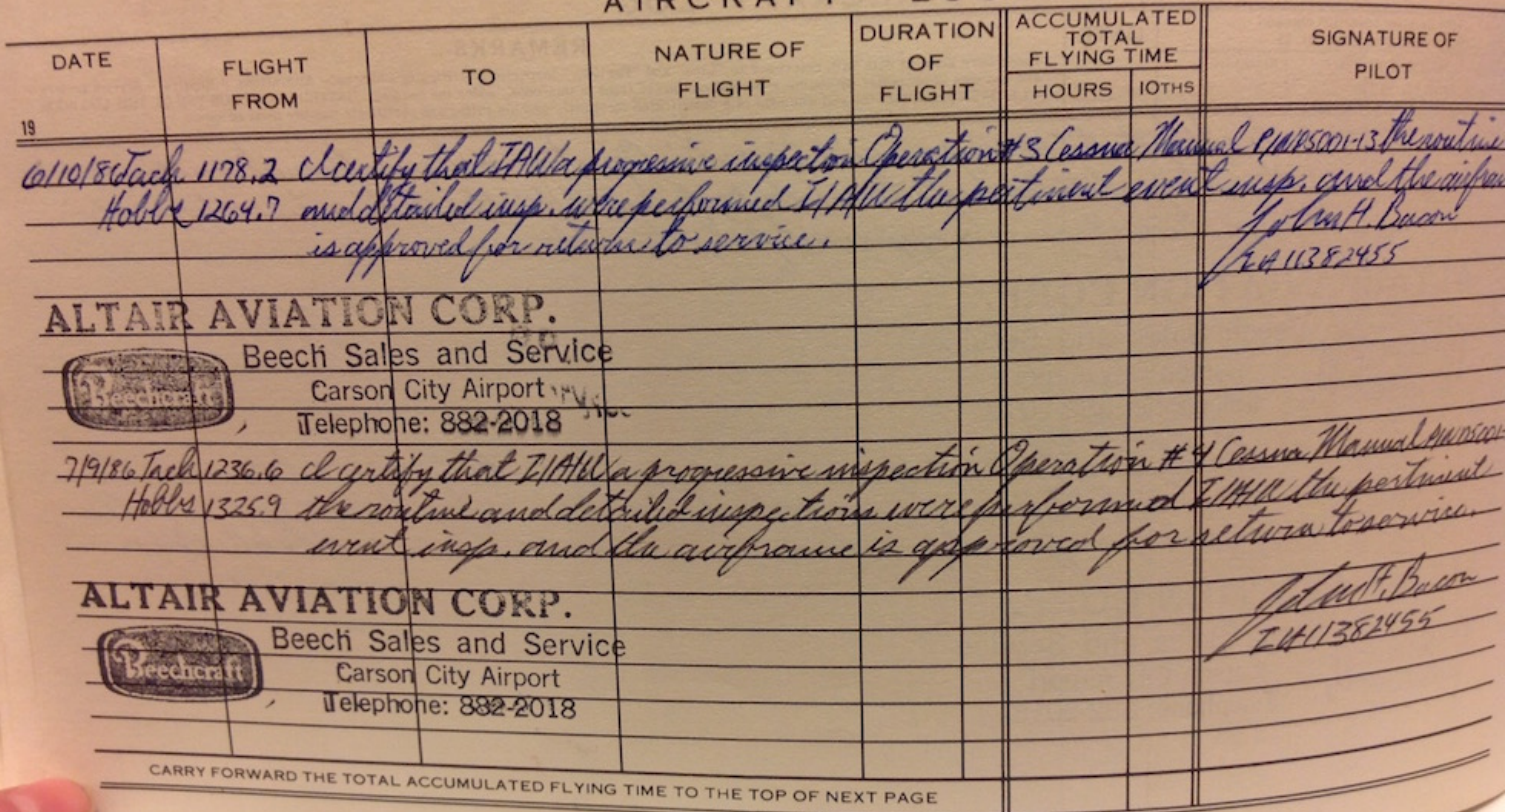 AIRCRAFT
DATE
FLIGHT FROM
TO
NATURE OF FLIGHT
DURATION OF FLIGHT
ACCUMULATED TOTAL FLYING TIME
HOURS
10THS
SIGNATURE OF PILOT
19
6/10/86 Tach 1178.2 I certify that IAW a progressive inspection Operation #3 Cessna Manual P/N D5001-13 the routine
Hobbs 1264.7 and detailed insp. were performed IAW the pertinent event insp. and the
is approved for return to service.
John H. Bacon
IA 11382455
ALTAIR AVIATION CORP.
Beechcraft
Beech Sales and Service
Carson City Airport
Telephone: 882-2018
7/9/86 Tach 1236.6 I certify that IAW a progressive inspection Operation #4 Cessna Manual P/N D5001-
Hobbs 1325.9 the routine and detailed inspections were performed IAW the pertinent
event insp. and the airframe is approved for return to service.
John H. Bacon
IA 11382455
ALTAIR AVIATION CORP.
Beechcraft
Beech Sales and Service
Carson City Airport
Telephone: 882-2018
CARRY FORWARD THE TOTAL ACCUMULATED FLYING TIME TO THE TOP OF NEXT PAGE